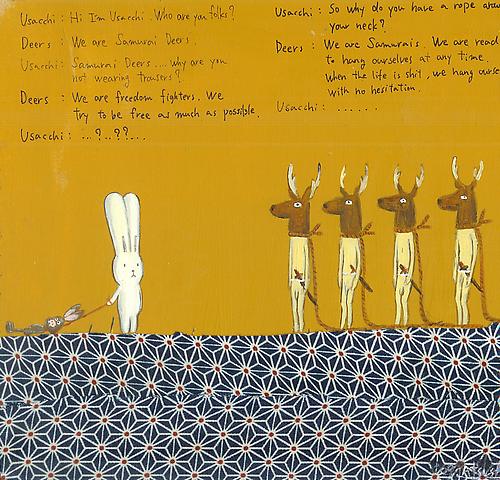 Usacchi : Hi I'm Usacchi. Who are you folks?
Deers : We are Samurai Deers.
Usacchi : Samurai Deers.... why are you
not wearing trousers?
Deers : We are freedom fighters. We
try to be free as much as possible.
Usacchi : ...?..??...
Usacchi : So why do you have a rope
your neck?
Deers : We are Samurais. We are
to hang ourselves at any time.
When the life is shit, we hang
with no hesitation.
Usacchi : ......